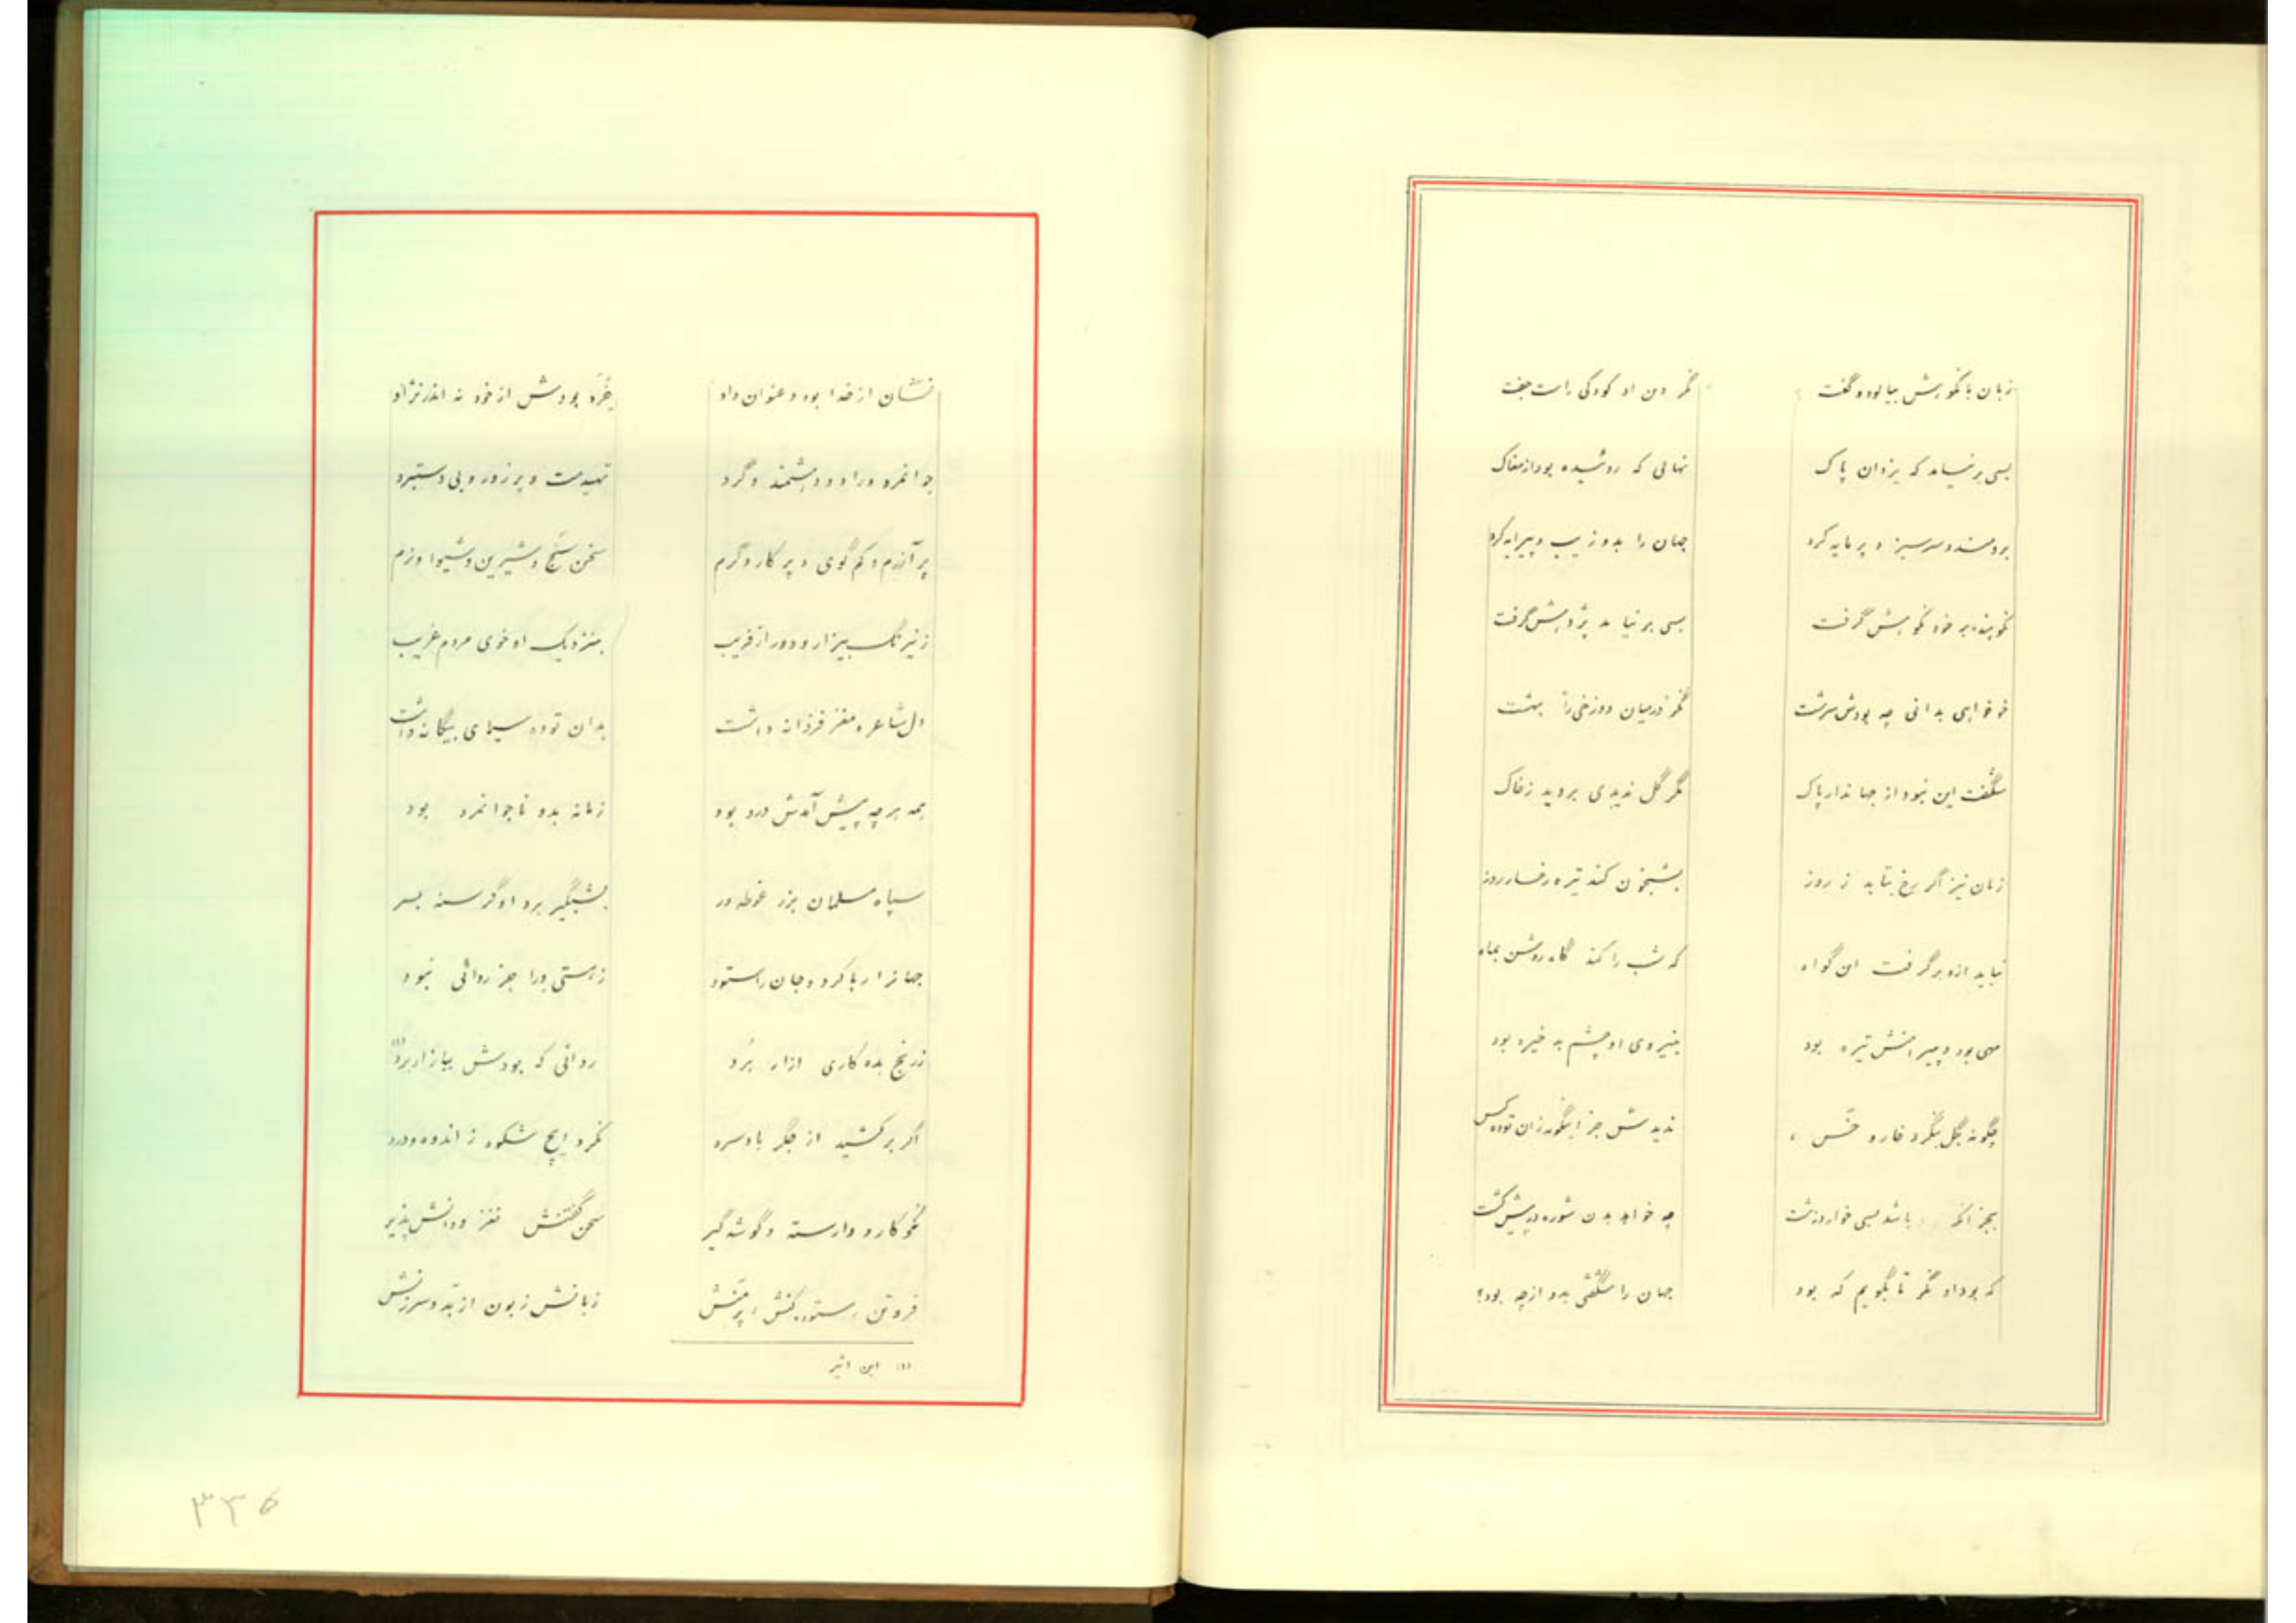 زبان با نکورش بیالود و گفت    نگر دن او کودکی راست جفت
بسی برنیامد که یزدان پاک    نهالی که روشیده بود از مغاک
برومند و سرسبز و پر مایه کرد    جهان را بدو زیب و پیرایه کرد
نکوهنده بر خود نکوهش گرفت    بسی بر نیامد پژوهش گرفت
خوخواهی بدانی چه بودش سرشت    نگر درمیان دوزخی را بهشت
شگفت این نبود از جهاندار پاک    مگر گل ندیدی بروید ز خاک
زمان نیز اگر رخ بتابد ز روز    بشبخون کند تیره رخسار روز
نباید ازو برگرفت ان گواه    که شب را کند گاه روشن بماه
مهی بود و پیرامنش تیره بود    بنیروی او چشم به خیره بود
چگونه بگل بنگرد خار و خس ،    ندیدش جز اینگونه زان توده کس
بجز آنکه باشد بسی خوار و زشت    چه خواهد بدن شوره در پیش کشت
که بود او نگر تا بگویم که بود    جهان را شگفتی بدو از چه بود؟
نشان از خدا بود و عنوان داد    خرد بودش از خود نه اندر نژاد
جوانمرد و راد و دهشمند و گرد    تهیدست و پر زور و بی دستبرد
پر آزرم و کم گوی و پر کار و گرم    سخن سنج و شیرین و شیوا و نرم
ز نیرنگ بیزار و دور از فریب    بنزدیک او خوی مردم غریب
دل شاعر و مغز فرزانه داشت    بدان توده سیمای بیگانه داشت
همه هر چه پیش آمدش درد بود    زمانه بدو ناجوانمرد بود
سپاه مسلمان بزر غوطه ور    بشبگیر برد او گرسنه بسر
جهانرا رها کرد و جان را ستود    ز هستی ورا جز روانی نبود
ز رنج بده کاری ازار بُرد    روانی که بودش ببازار برد (۱)
اگر برکشید از جگر باد سرد    نکرد ایچ شکوه ز اندوه و درد
نکو کار و وارسته و گوشه گیر    سخن گفتنش نغز و دانش پذیر
فروتن ستوده کنش برمنش    زبانش زبون از بد و سرزنش
(۱) ابن اثیر
۳۳۵